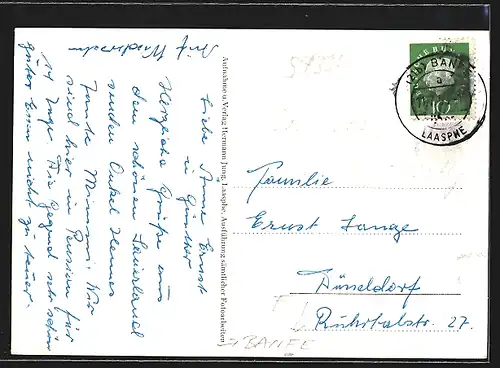 Liebe Änne Ernst
u. Günther
Herzliche Grüße aus
dem schönen Sauerland
senden Onkel Hannes
Tante Mimmi. Wir
sind hier in Pension für
14 Tage. Die Gegend sehr schön
gutes Essen nicht zu teuer.
Auf Wiedersehn
Aufnahme u. Verlag Hermann Jung, Laasphe, Ausführung sämtlicher Fotoarbeiten
BANFE
LAASPHE
10
Familie
Ernst Lange
Düsseldorf
Ruhrtalstr. 27.
BANFE